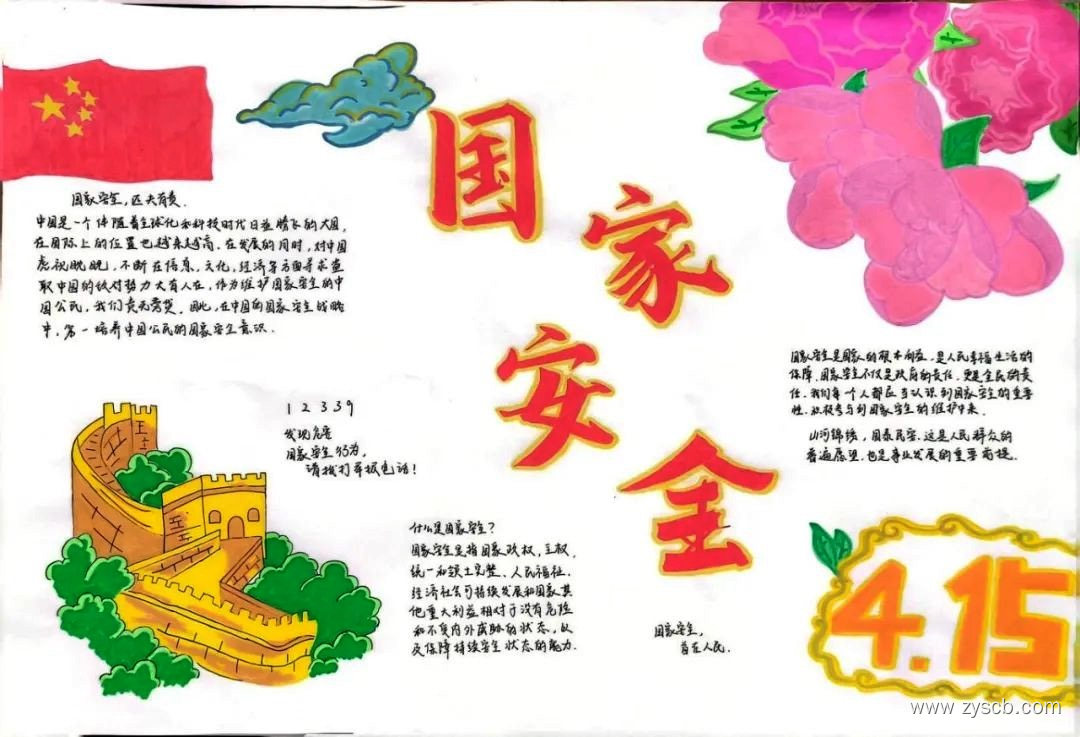 国家安全
国家安全，匹夫有责.
中国是一个伴随着全球化和科技时代日益腾飞的大国，
在国际上的位置也越来越高. 在发展的同时，对中国
虎视眈眈，不断在信息，文化，经济等方面寻求盗
取中国的敌对势力大有人在，作为维护国家安全的中
国公民，我们责无旁贷. 因此，在中国的国家安全战略
中，第一培养中国公民的国家安全意识.
12339
发现危害
国家安全行为，
请拨打举报电话！
什么是国家安全？
国家安全是指国家政权，主权，
统一和领土完整、人民福祉、
经济社会可持续发展和国家其
他重大利益相对于没有危险
和不受内外威胁的状态，以
及保障持续安全状态的能力.
国家安全，
首在人民.
国家安全是国家的根本利益，是人民幸福生活的
保障.国家安全不仅是政府的责任，更是全民的责
任，我们每一个人都应当认识到国家安全的重要
性，积极参与到国家安全的维护中来.
山河锦绣，国泰民安，这是人民群众的
普遍愿望，也是事业发展的重要前提.
4.15
www.zyscb.com